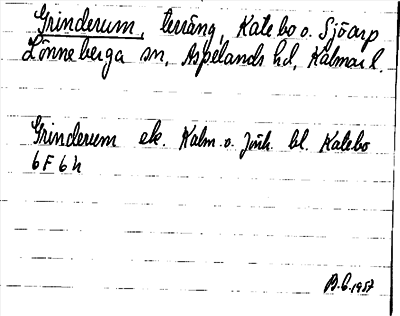 Grinderum, terräng, Katebo o. Sjöarp
Lönneberga sn, Aspelands hd, Kalmar l.
Grinderum ek. Kalm. o. Jönk. bl. Katebo
6F6h
B.G. 1957